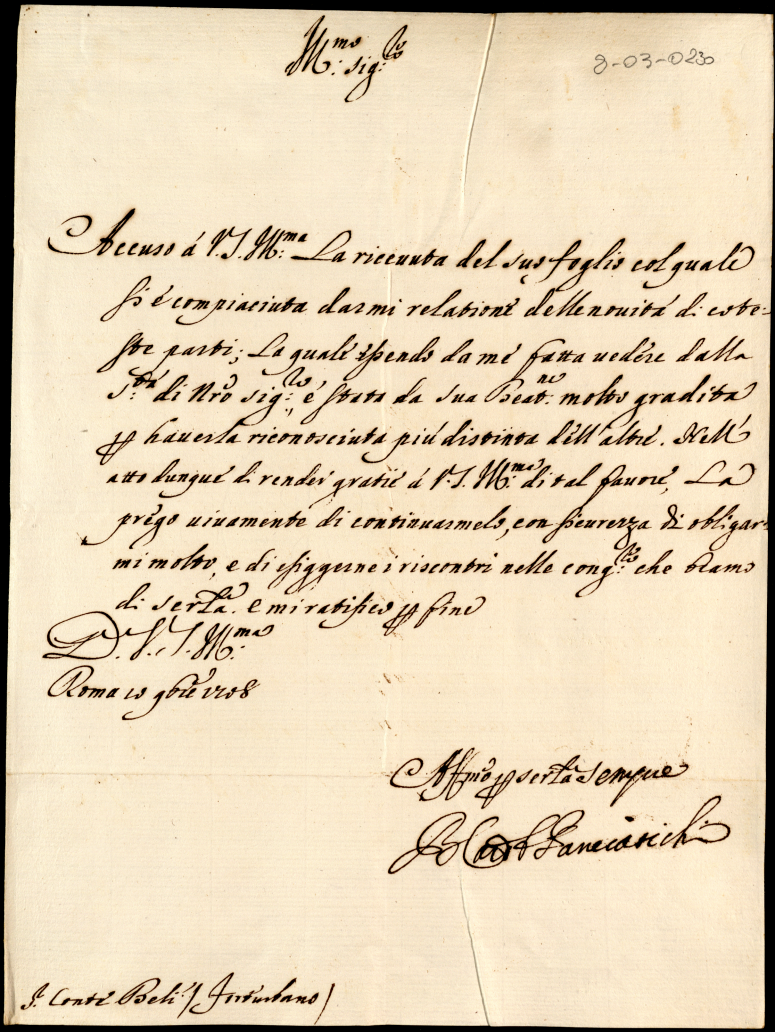 Ill:mo Sig:re
8-03-0230
Accuso á V.S. Ill:ma La riceuuta del suo foglio col quale
si é compiaciuta darmi relatione delle nouitá di cote-
ste parti; La quale essendo da me fatta uedere dalla
S:tá di Nro Sig:re, é stata da sua Beat:ne molto gradita
p hauerla riconosciuta piú distinta dell'altre. Nell'
atto dunque di render gratie á V.S. Ill:ma di tal fauore, La
prego uiuamente di continuarmelo, con sicurezza di obligar-
mi molto, e di esiggerne i riscontri nelle cong:re che bramo
di seru:la. e mi ratifico p fine
D. V. S. Ill:ma
Roma 10 9bre 1708
Aff:mo p seru:la sempre
Card Panciatichi
S. Conte Beli / Forteurbano /